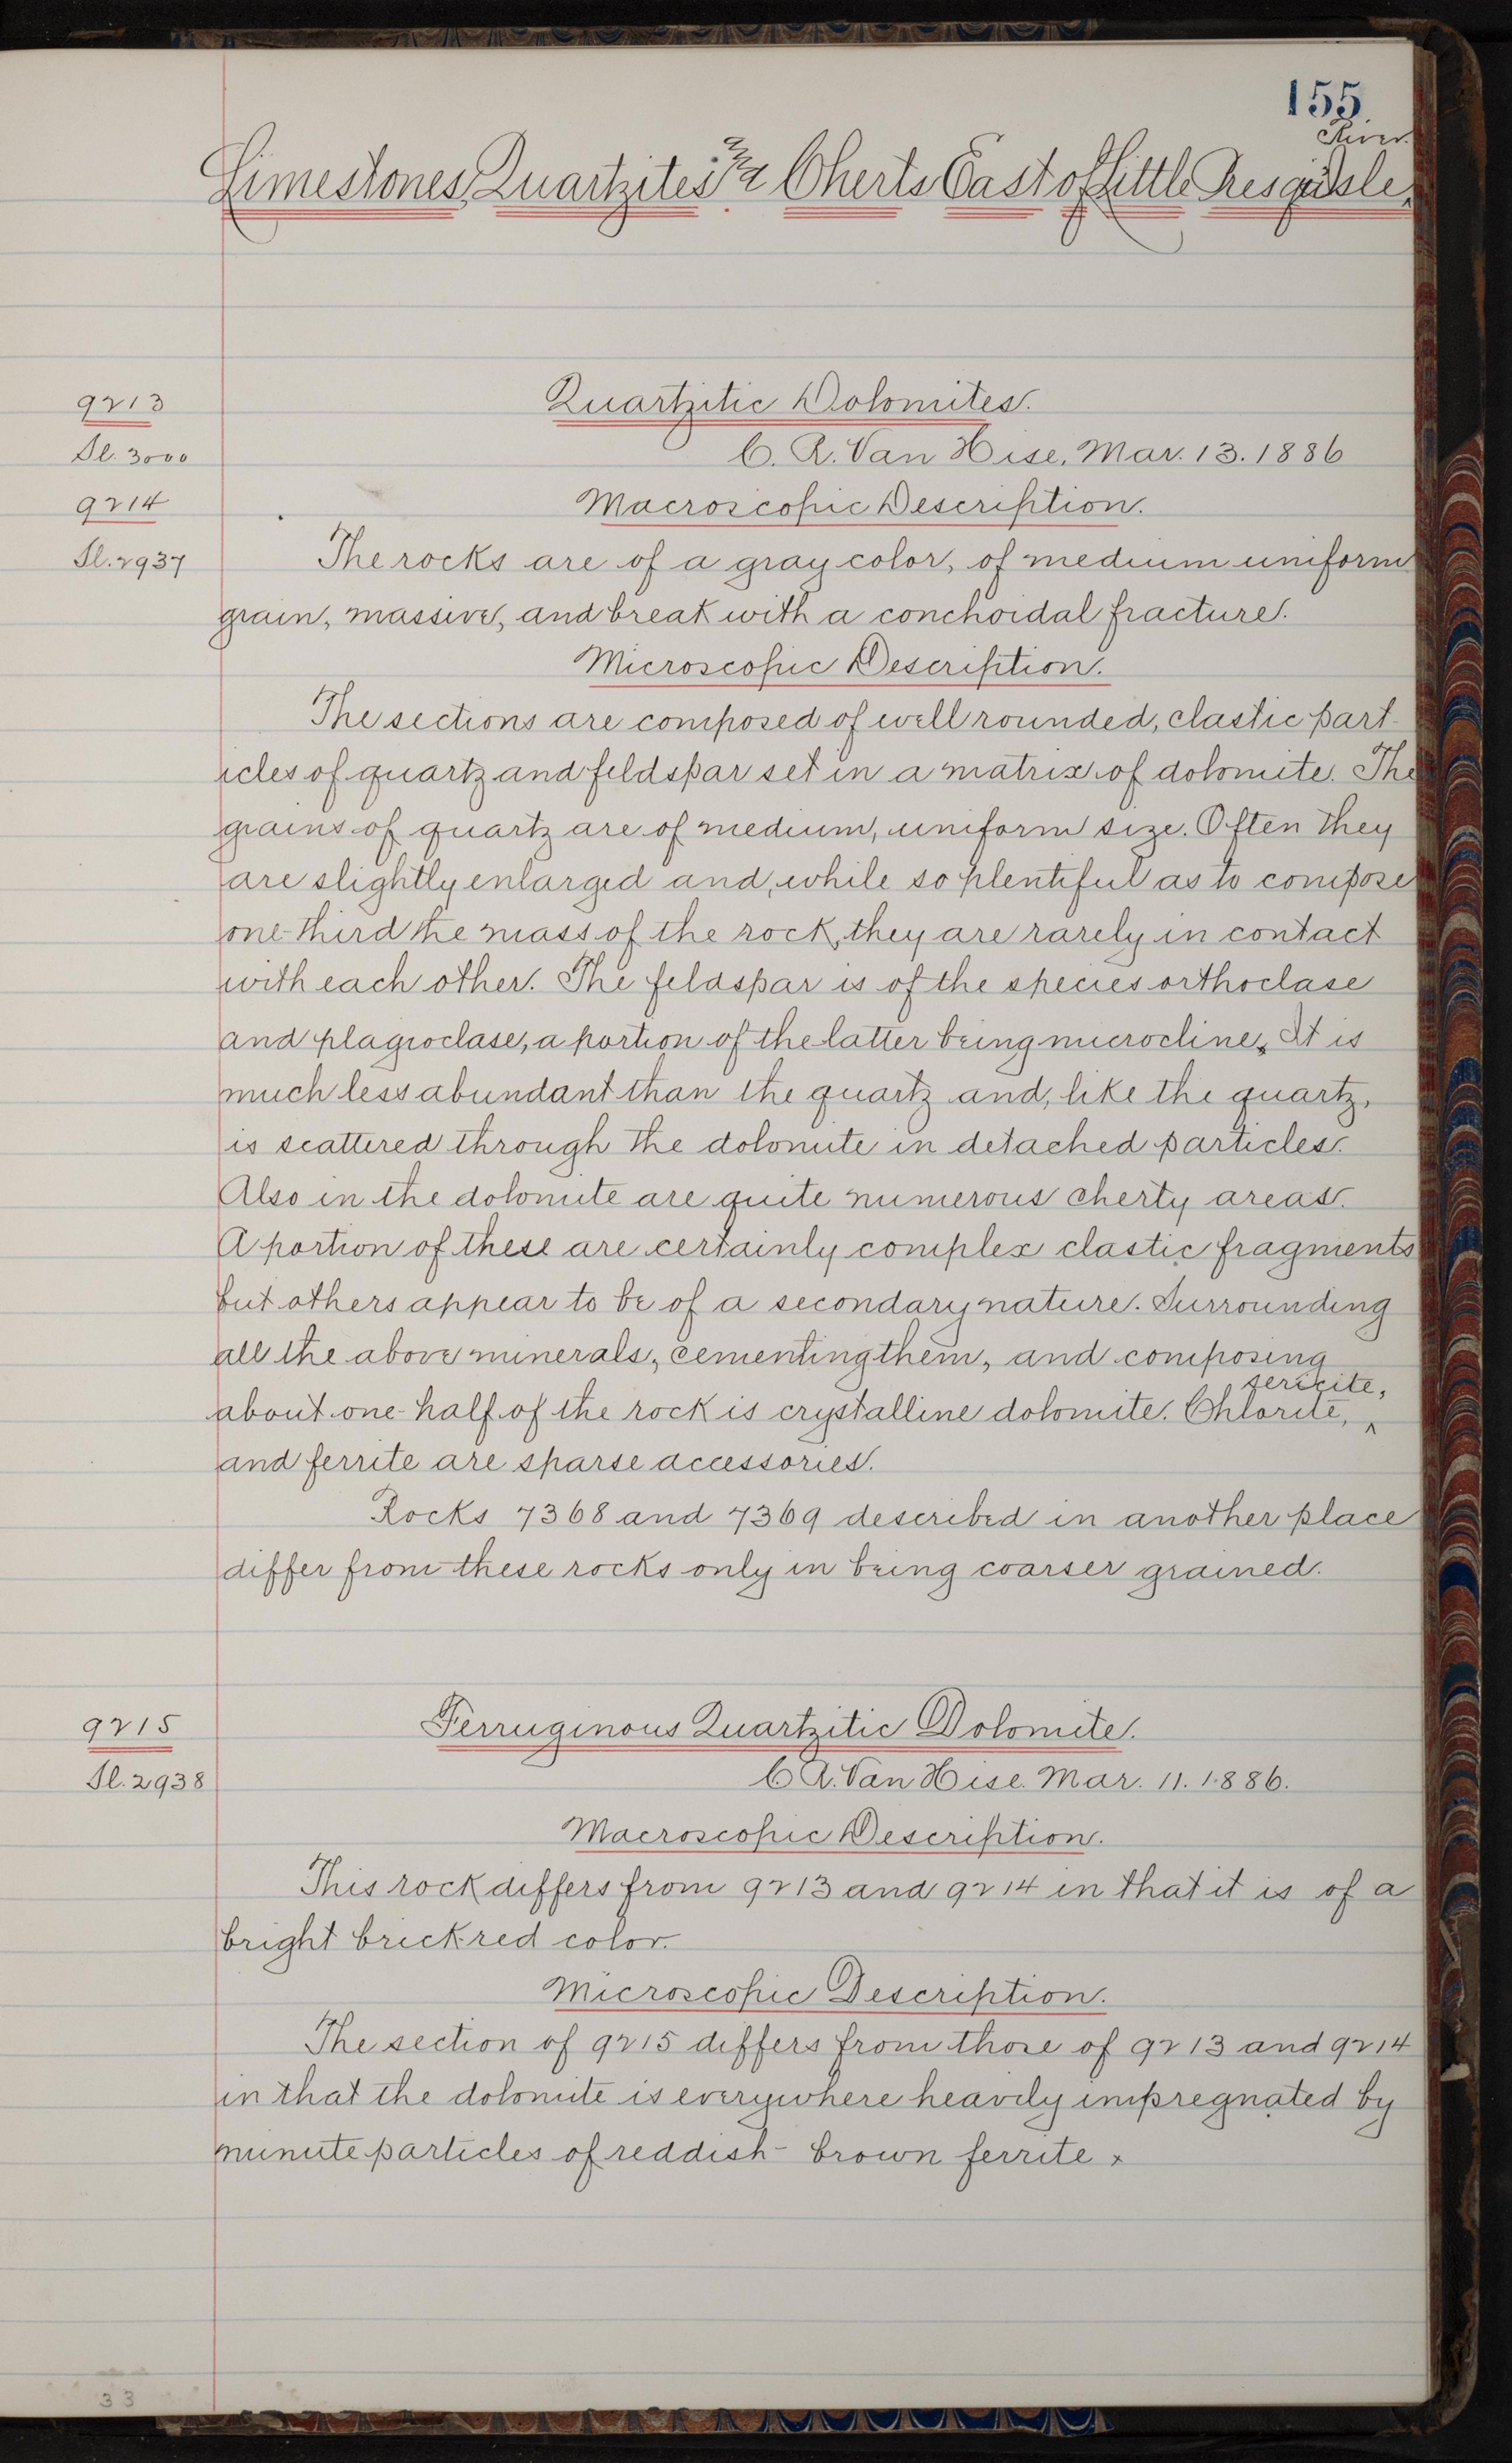 155
River.
Limestones, Quartzites & Cherts East of Little Presqu'isle
9213
Quartzitic Dolomites.
Sl. 3000
C. R. Van Hise, Mar. 13. 1886
9214
Macroscopic Description.
Sl. 2937
The rocks are of a gray color, of medium uniform
grain, massive, and break with a conchoidal fracture.
Microscopic Description.
The sections are composed of well rounded, clastic part-
icles of quartz and feldspar set in a matrix of dolomite. The
grains of quartz are of medium, uniform size. Often they
are slightly enlarged and, while so plentiful as to compose
one-third the mass of the rock, they are rarely in contact
with each other. The feldspar is of the species orthoclase
and plagioclase, a portion of the latter being microcline. It is
much less abundant than the quartz and, like the quartz,
is scattered through the dolomite in detached particles.
Also in the dolomite are quite numerous cherty areas.
A portion of these are certainly complex clastic fragments
but others appear to be of a secondary nature. Surrounding
all the above minerals, cementing them, and composing
sericite,
about one-half of the rock is crystalline dolomite. Chlorite, ^
and ferrite are sparse accessories.
Rocks 7368 and 7369 described in another place
differ from these rocks only in being coarser grained.
9215
Ferruginous Quartzitic Dolomite.
Sl. 2938
C R. Van Hise. Mar. 11. 1886.
Macroscopic Description.
This rock differs from 9213 and 9214 in that it is of a
bright brick red color.
Microscopic Description.
The section of 9215 differs from those of 9213 and 9214
in that the dolomite is everywhere heavily impregnated by
minute particles of reddish-brown ferrite.
33